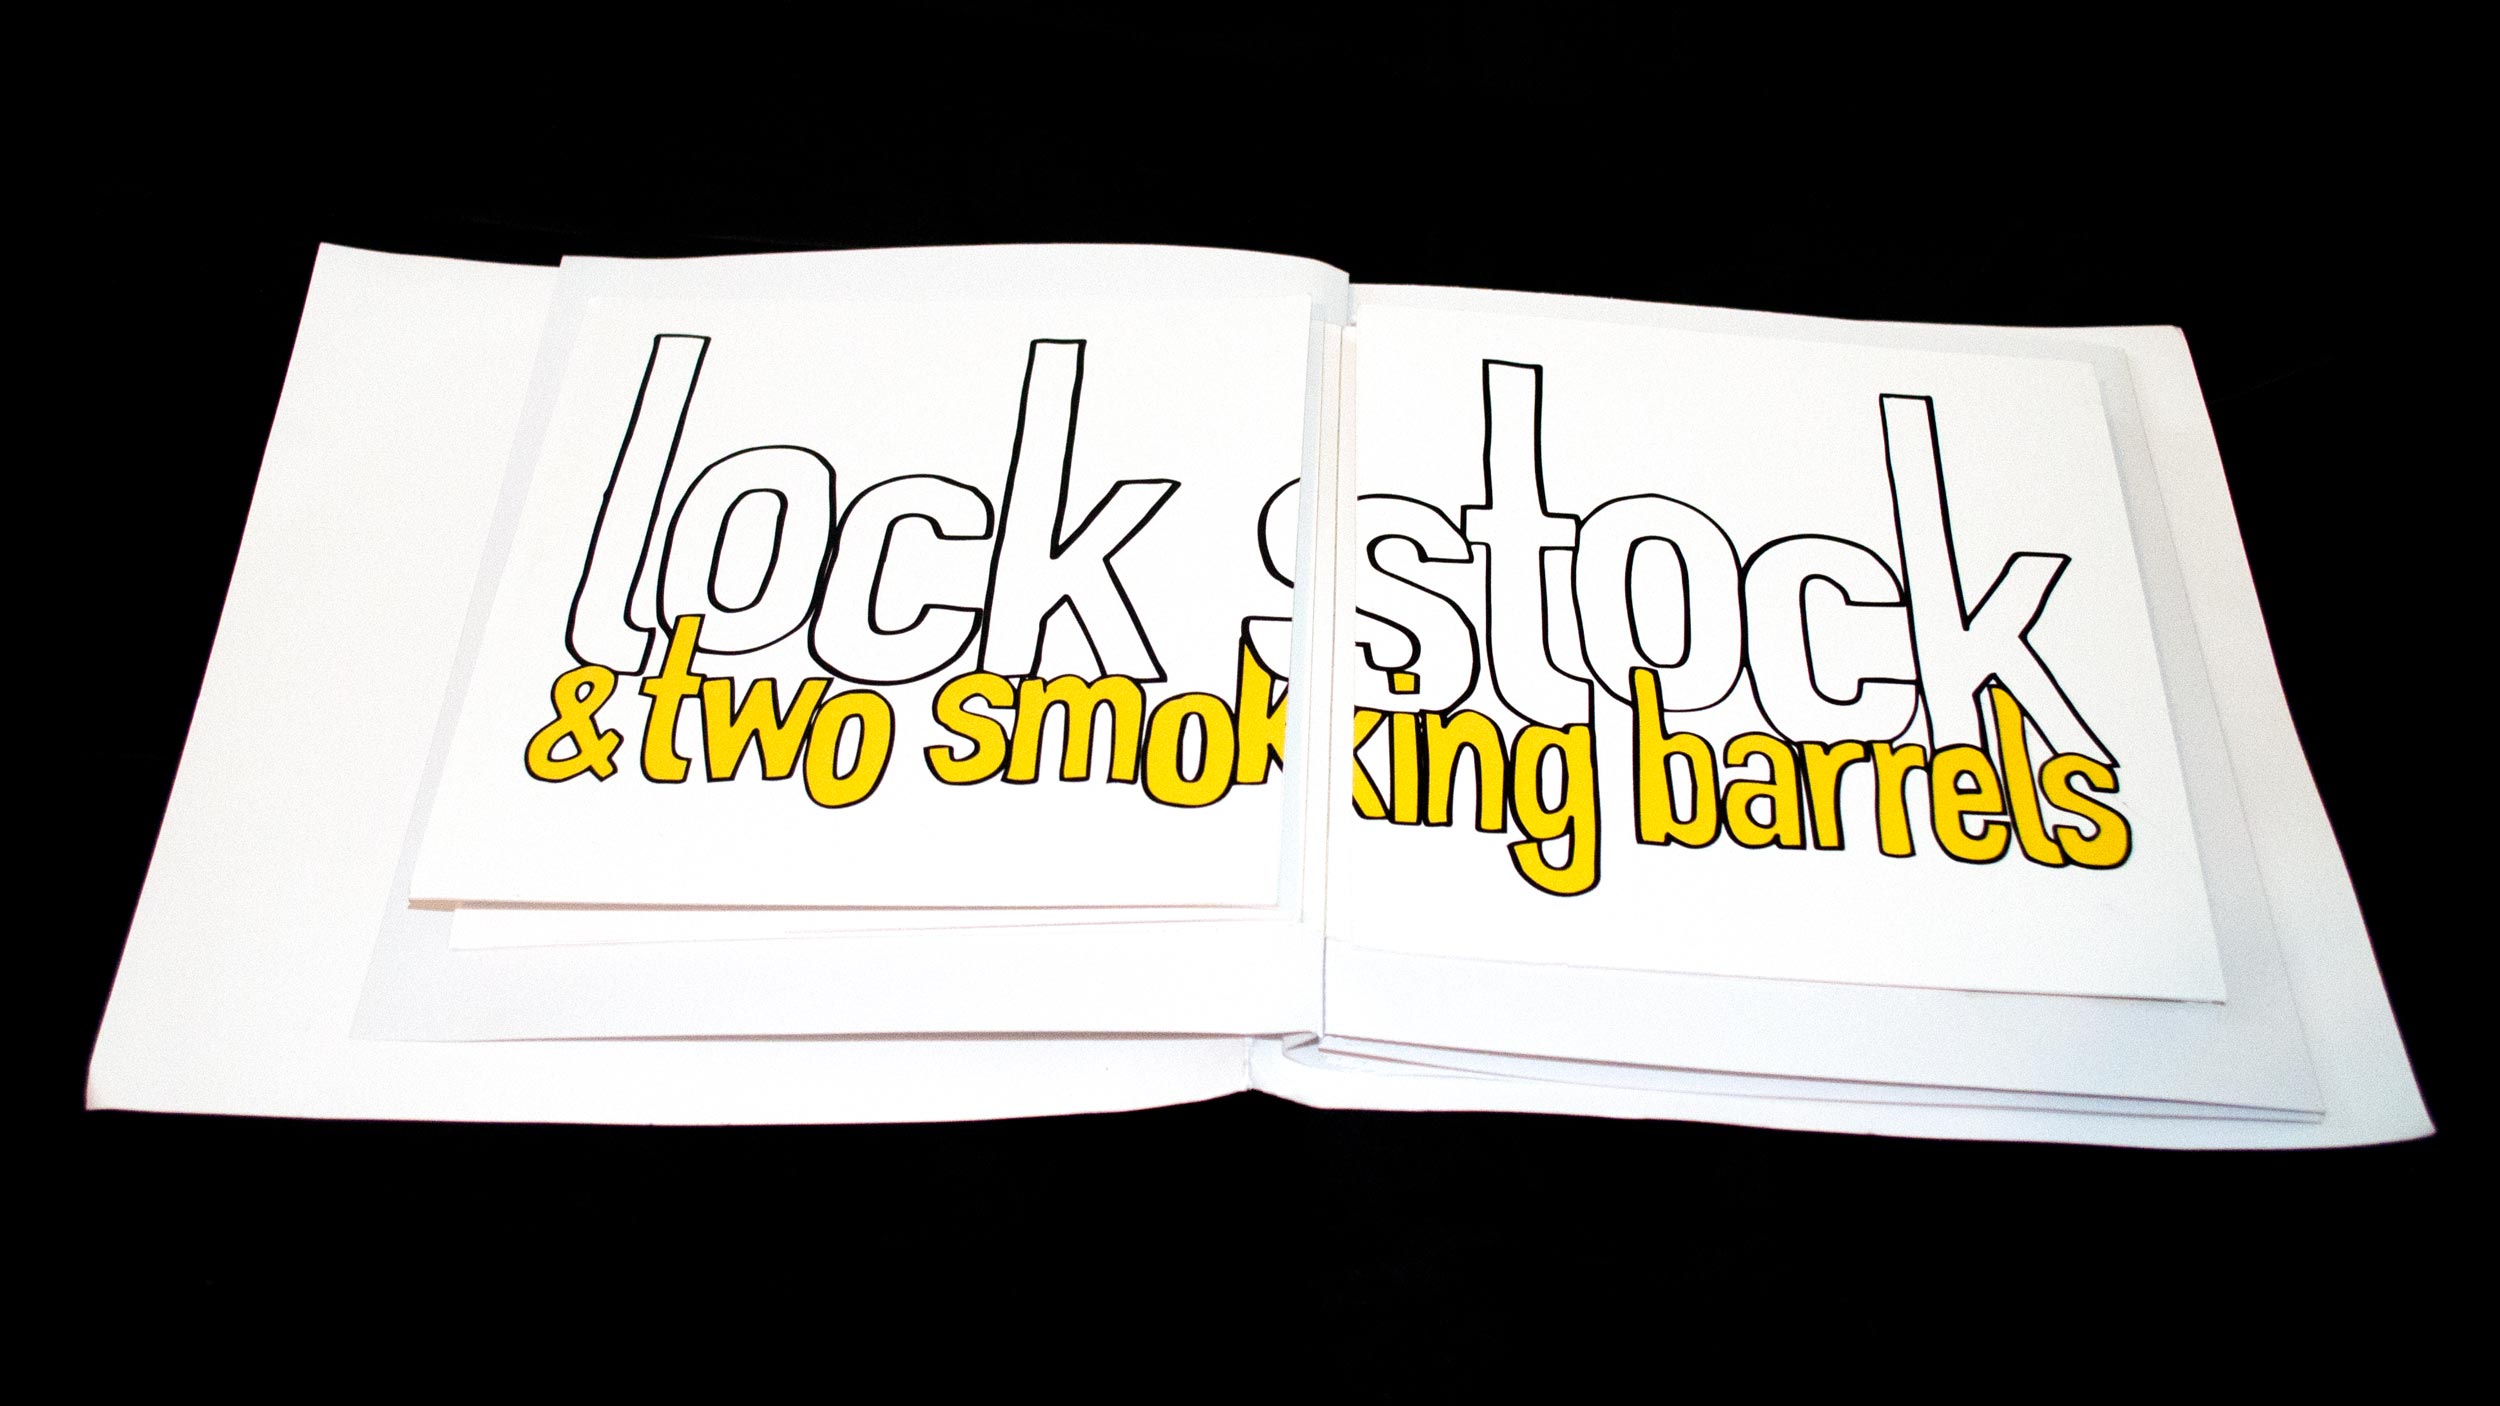 lock stock
& two smoking barrels